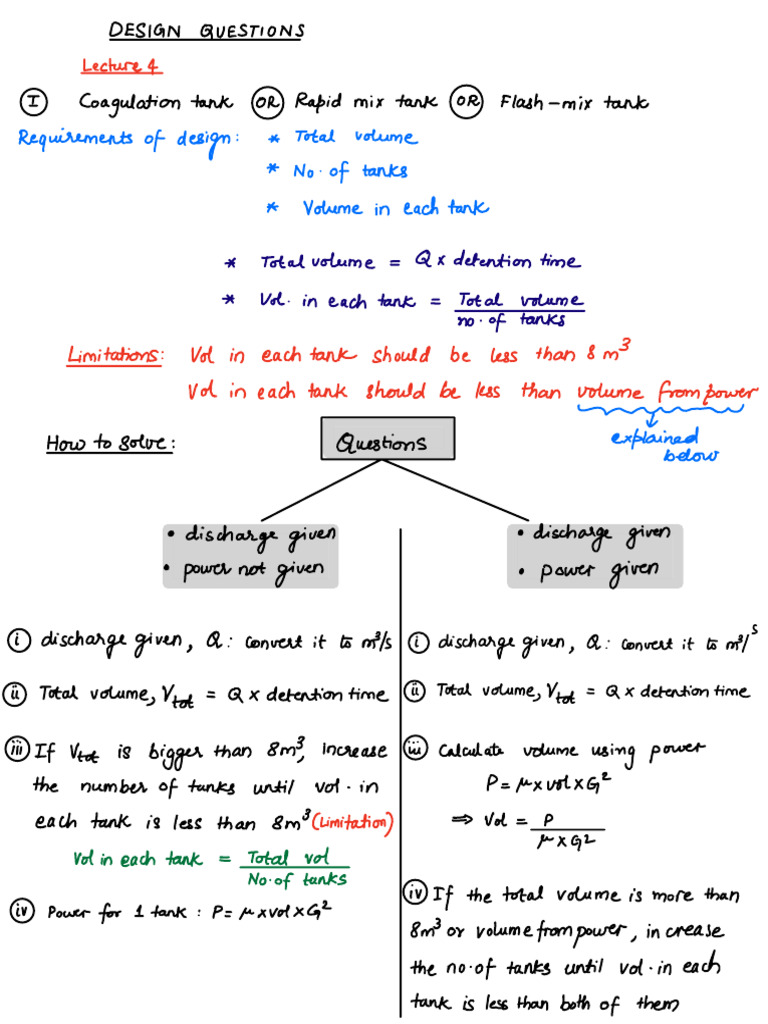 DESIGN QUESTIONS
Lecture 4
I Coagulation tank OR Rapid mix tank OR Flash-mix tank
Requirements of design: * Total volume
* No. of tanks
* Volume in each tank
* Total volume = Q x detention time
* Vol. in each tank = Total volume
no. of tanks
Limitations: Vol in each tank should be less than 8 m³
Vol in each tank should be less than volume from power
explained
below
How to solve:
Questions
• discharge given
• power not given
i discharge given, Q: convert it to m³/s
ii Total volume, Vtot = Q x detention time
iii If Vtot is bigger than 8m³, increase
the number of tanks until vol. in
each tank is less than 8m³ (Limitation)
Vol in each tank = Total vol
No. of tanks
iv Power for 1 tank : P = μ x vol x G²
• discharge given
• power given
i discharge given, Q: convert it to m³/s
ii Total volume, Vtot = Q x detention time
iii Calculate volume using power
P = μ x vol x G²
⇒ Vol = P
μ x G²
iv If the total volume is more than
8m³ or volume from power, increase
the no. of tanks until vol. in each
tank is less than both of them